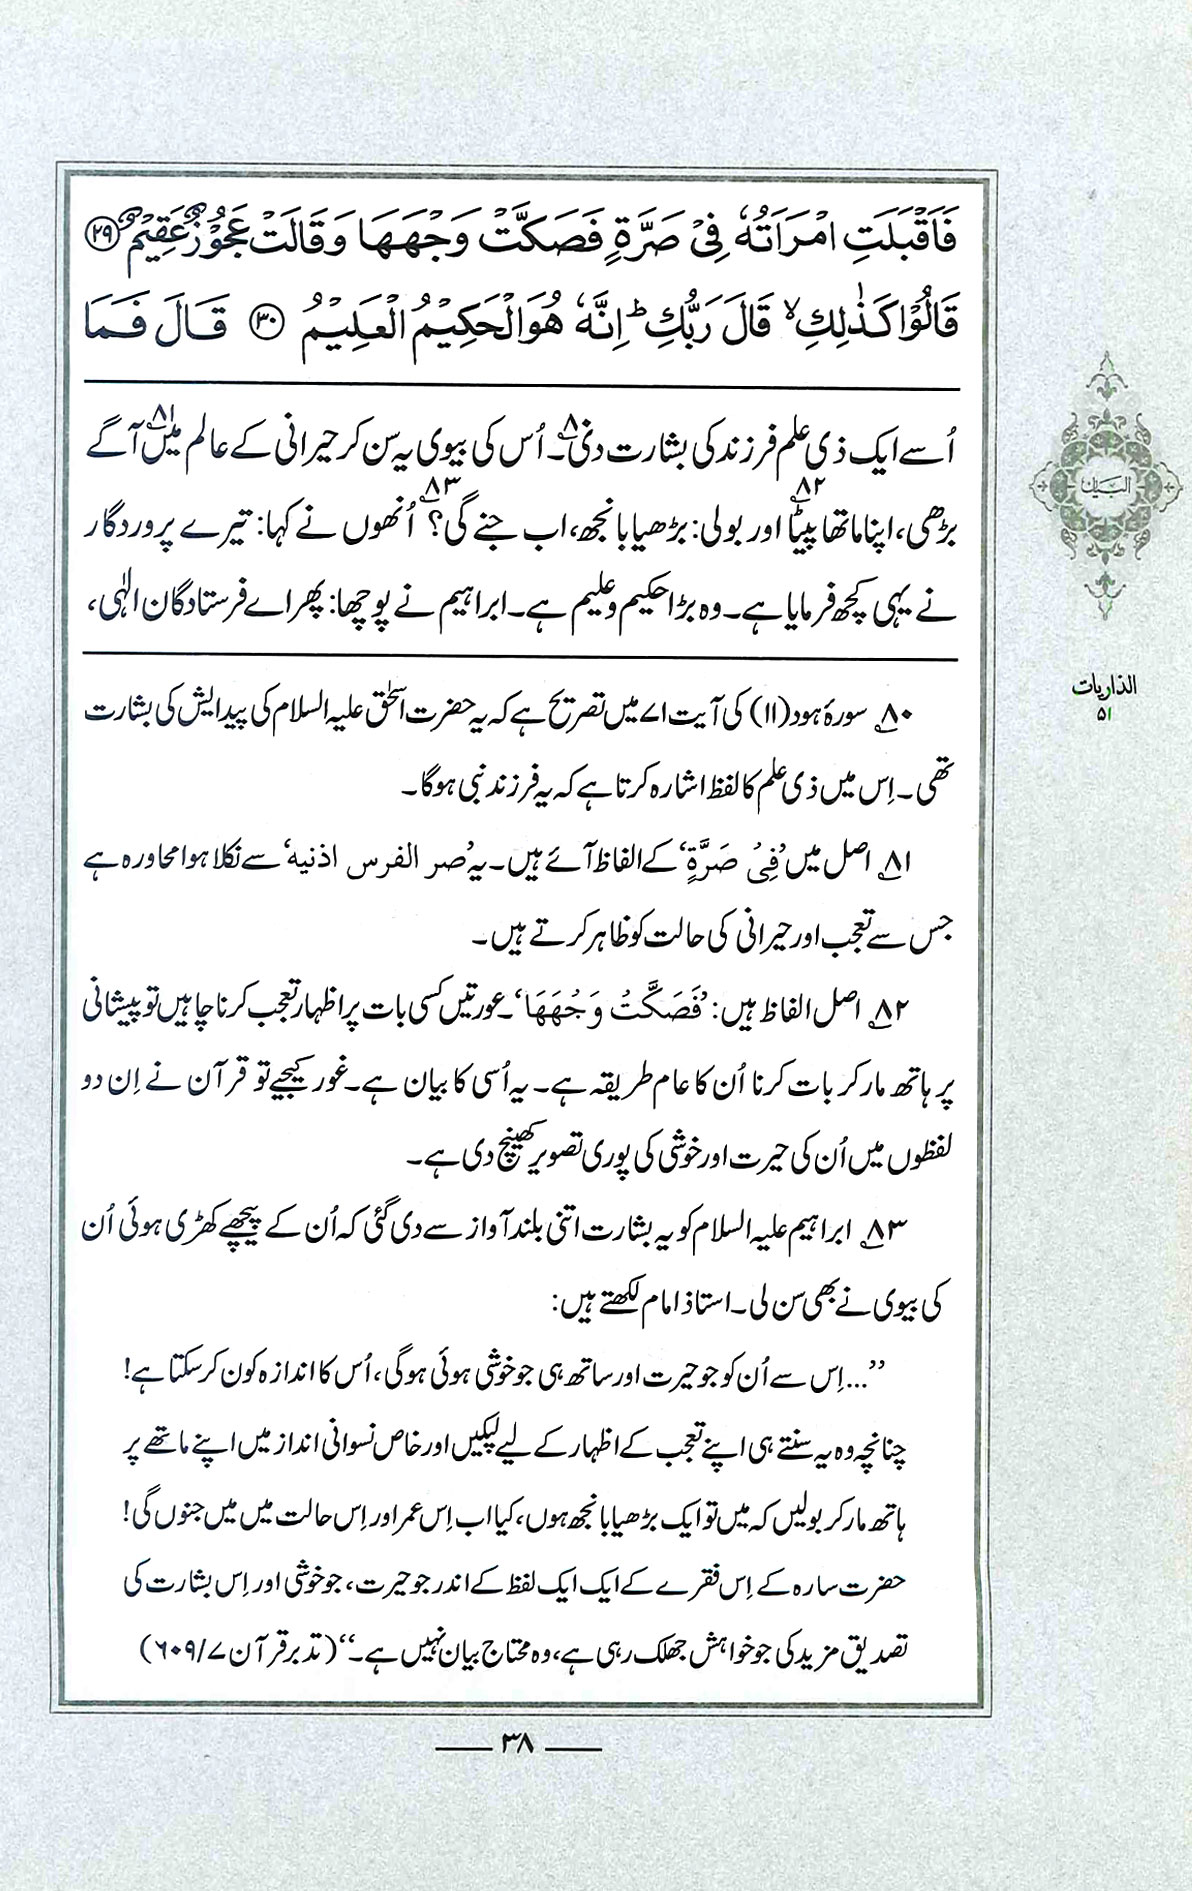 فَاَقْبَلَتِ امْرَاَتُهٗ فِيْ صَرَّةٍ فَصَكَّتْ وَجْهَهَا وَقَالَتْ عَجُوْزٌ عَقِيْمٌ ﴿۲۹﴾
قَالُوْا كَذٰلِكِ ۙ قَالَ رَبُّكِ ؕ اِنَّهٗ هُوَ الْحَكِيْمُ الْعَلِيْمُ ﴿۳۰﴾ قَالَ فَمَا
اُسے ایک ذی علم فرزند کی بشارت دی۔۸۰ اُس کی بیوی یہ سن کر حیرانی کے عالم میں۸۱ آگے
بڑھی، اپنا ماتھا پیٹا۸۲ اور بولی: بڑھیا بانجھ، اب جنے گی؟۸۳ اُنھوں نے کہا: تیرے پروردگار
نے یہی کچھ فرمایا ہے۔ وہ بڑا حکیم و علیم ہے۔ ابراہیم نے پوچھا: پھر اے فرستادگان الٰہی،
۸۰ سورۂ ہود (۱۱) کی آیت ۷۱ میں تصریح ہے کہ یہ حضرت اسحٰق علیہ السلام کی پیدایش کی بشارت
تھی۔ اِس میں ذی علم کا لفظ اشارہ کرتا ہے کہ یہ فرزند نبی ہوگا۔
۸۱ اصل میں ’فِيْ صَرَّةٍ‘ کے الفاظ آئے ہیں۔ یہ ’صر الفرس اذنيه‘ سے نکلا ہوا محاورہ ہے
جس سے تعجب اور حیرانی کی حالت کو ظاہر کرتے ہیں۔
۸۲ اصل الفاظ ہیں: ’فَصَكَّتْ وَجْهَهَا‘۔ عورتیں کسی بات پر اظہار تعجب کرنا چاہیں تو پیشانی
پر ہاتھ مار کر بات کرنا اُن کا عام طریقہ ہے۔ یہ اُسی کا بیان ہے۔ غور کیجیے تو قرآن نے اِن دو
لفظوں میں اُن کی حیرت اور خوشی کی پوری تصویر کھینچ دی ہے۔
۸۳ ابراہیم علیہ السلام کو یہ بشارت اتنی بلند آواز سے دی گئی کہ اُن کے پیچھے کھڑی ہوئی اُن
کی بیوی نے بھی سن لی۔ استاذ امام لکھتے ہیں:
’’...اِس سے اُن کو جو حیرت اور ساتھ ہی جو خوشی ہوئی ہوگی، اُس کا اندازہ کون کر سکتا ہے!
چنانچہ وہ یہ سنتے ہی اپنے تعجب کے اظہار کے لیے لپکیں اور خاص نسوانی انداز میں اپنے ماتھے پر
ہاتھ مار کر بولیں کہ میں تو ایک بڑھیا بانجھ ہوں، کیا اب اِس عمر اور اِس حالت میں میں جنوں گی!
حضرت سارہ کے اِس فقرے کے ایک ایک لفظ کے اندر جو حیرت، جو خوشی اور اِس بشارت کی
تصدیق مزید کی جو خواہش جھلک رہی ہے، وہ محتاج بیان نہیں ہے۔‘‘ (تدبر قرآن ۷/ ۶۰۹)
البیان
الذاریات
۵۱
۳۸